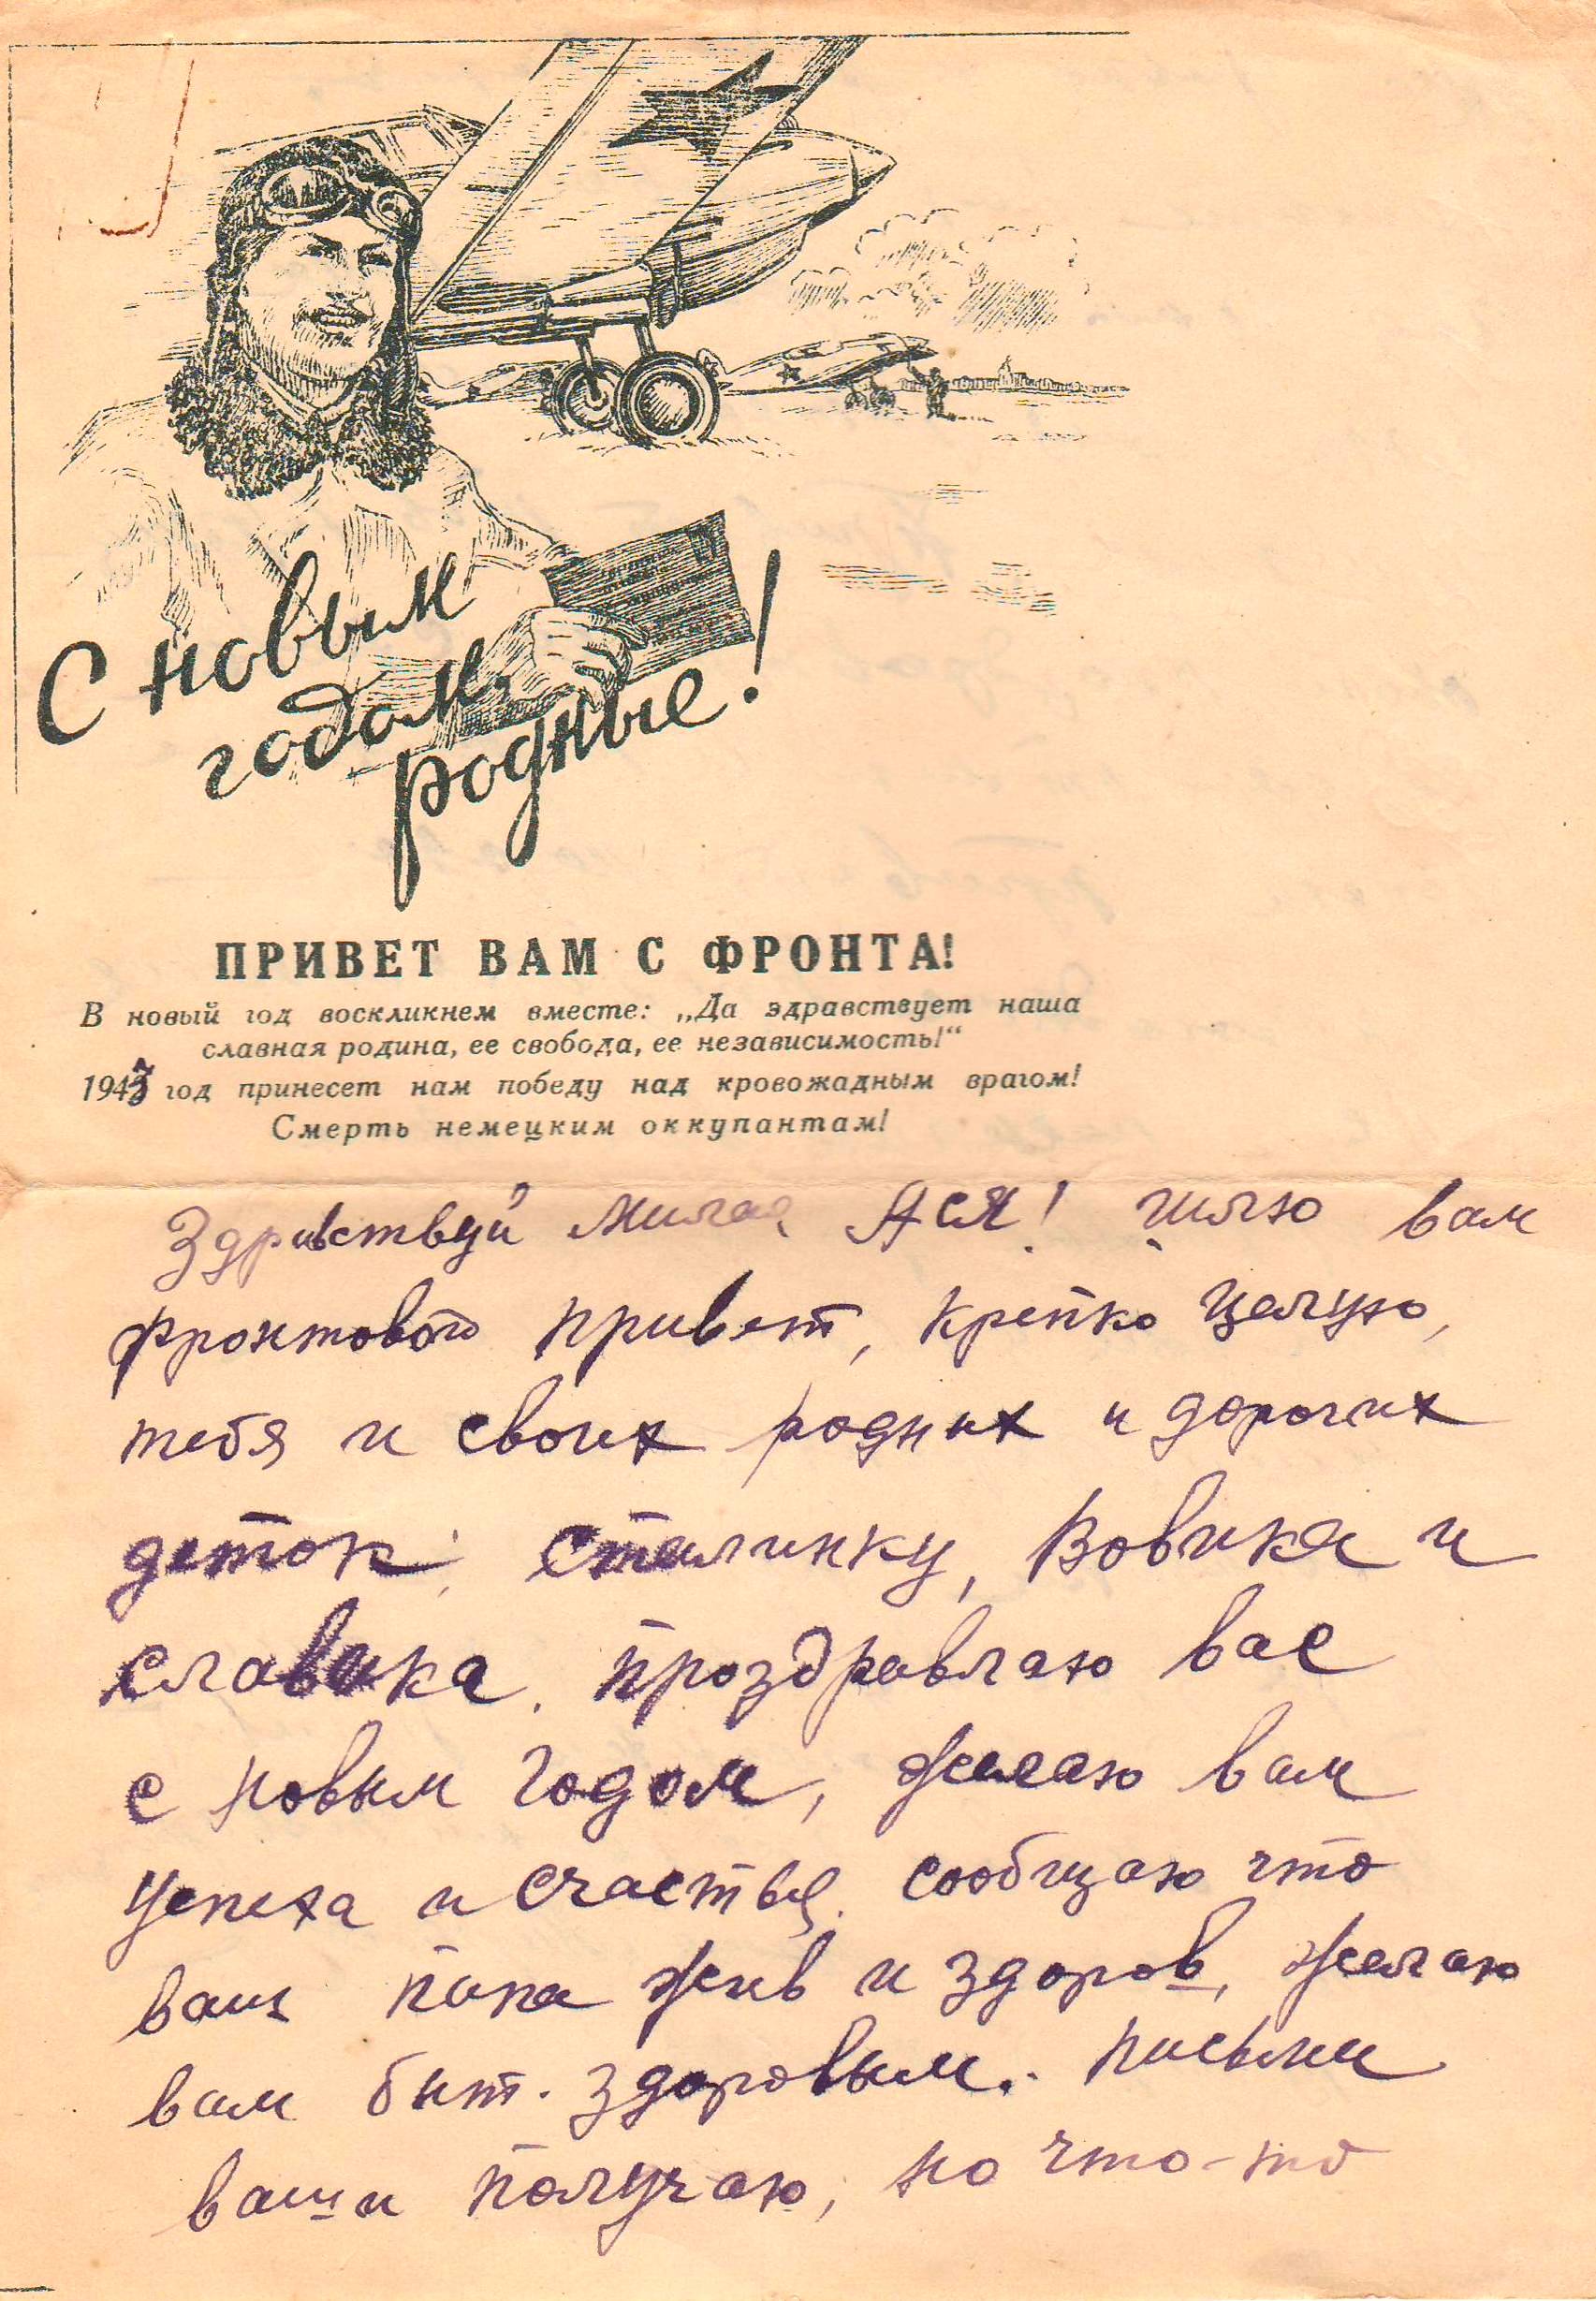 С новым
годом,
родные!
ПРИВЕТ ВАМ С ФРОНТА!
В новый год воскликнем вместе: „Да здравствует наша
славная родина, ее свобода, ее независимость!“
1943 год принесет нам победу над кровожадным врагом!
Смерть немецким оккупантам!
Здравствуй милая Ася! Шлю вам
фронтовой привет, крепко целую,
тебя и своих родных и дорогих
деток, Сталинку, Вовика и
Славика. Проздравляю вас
с новым годом, желаю вам
успеха и счастья. сообщаю что
ваш папа жив и здоров, желаю
вам быт. здоровым. письма
ваши получаю, но что-то